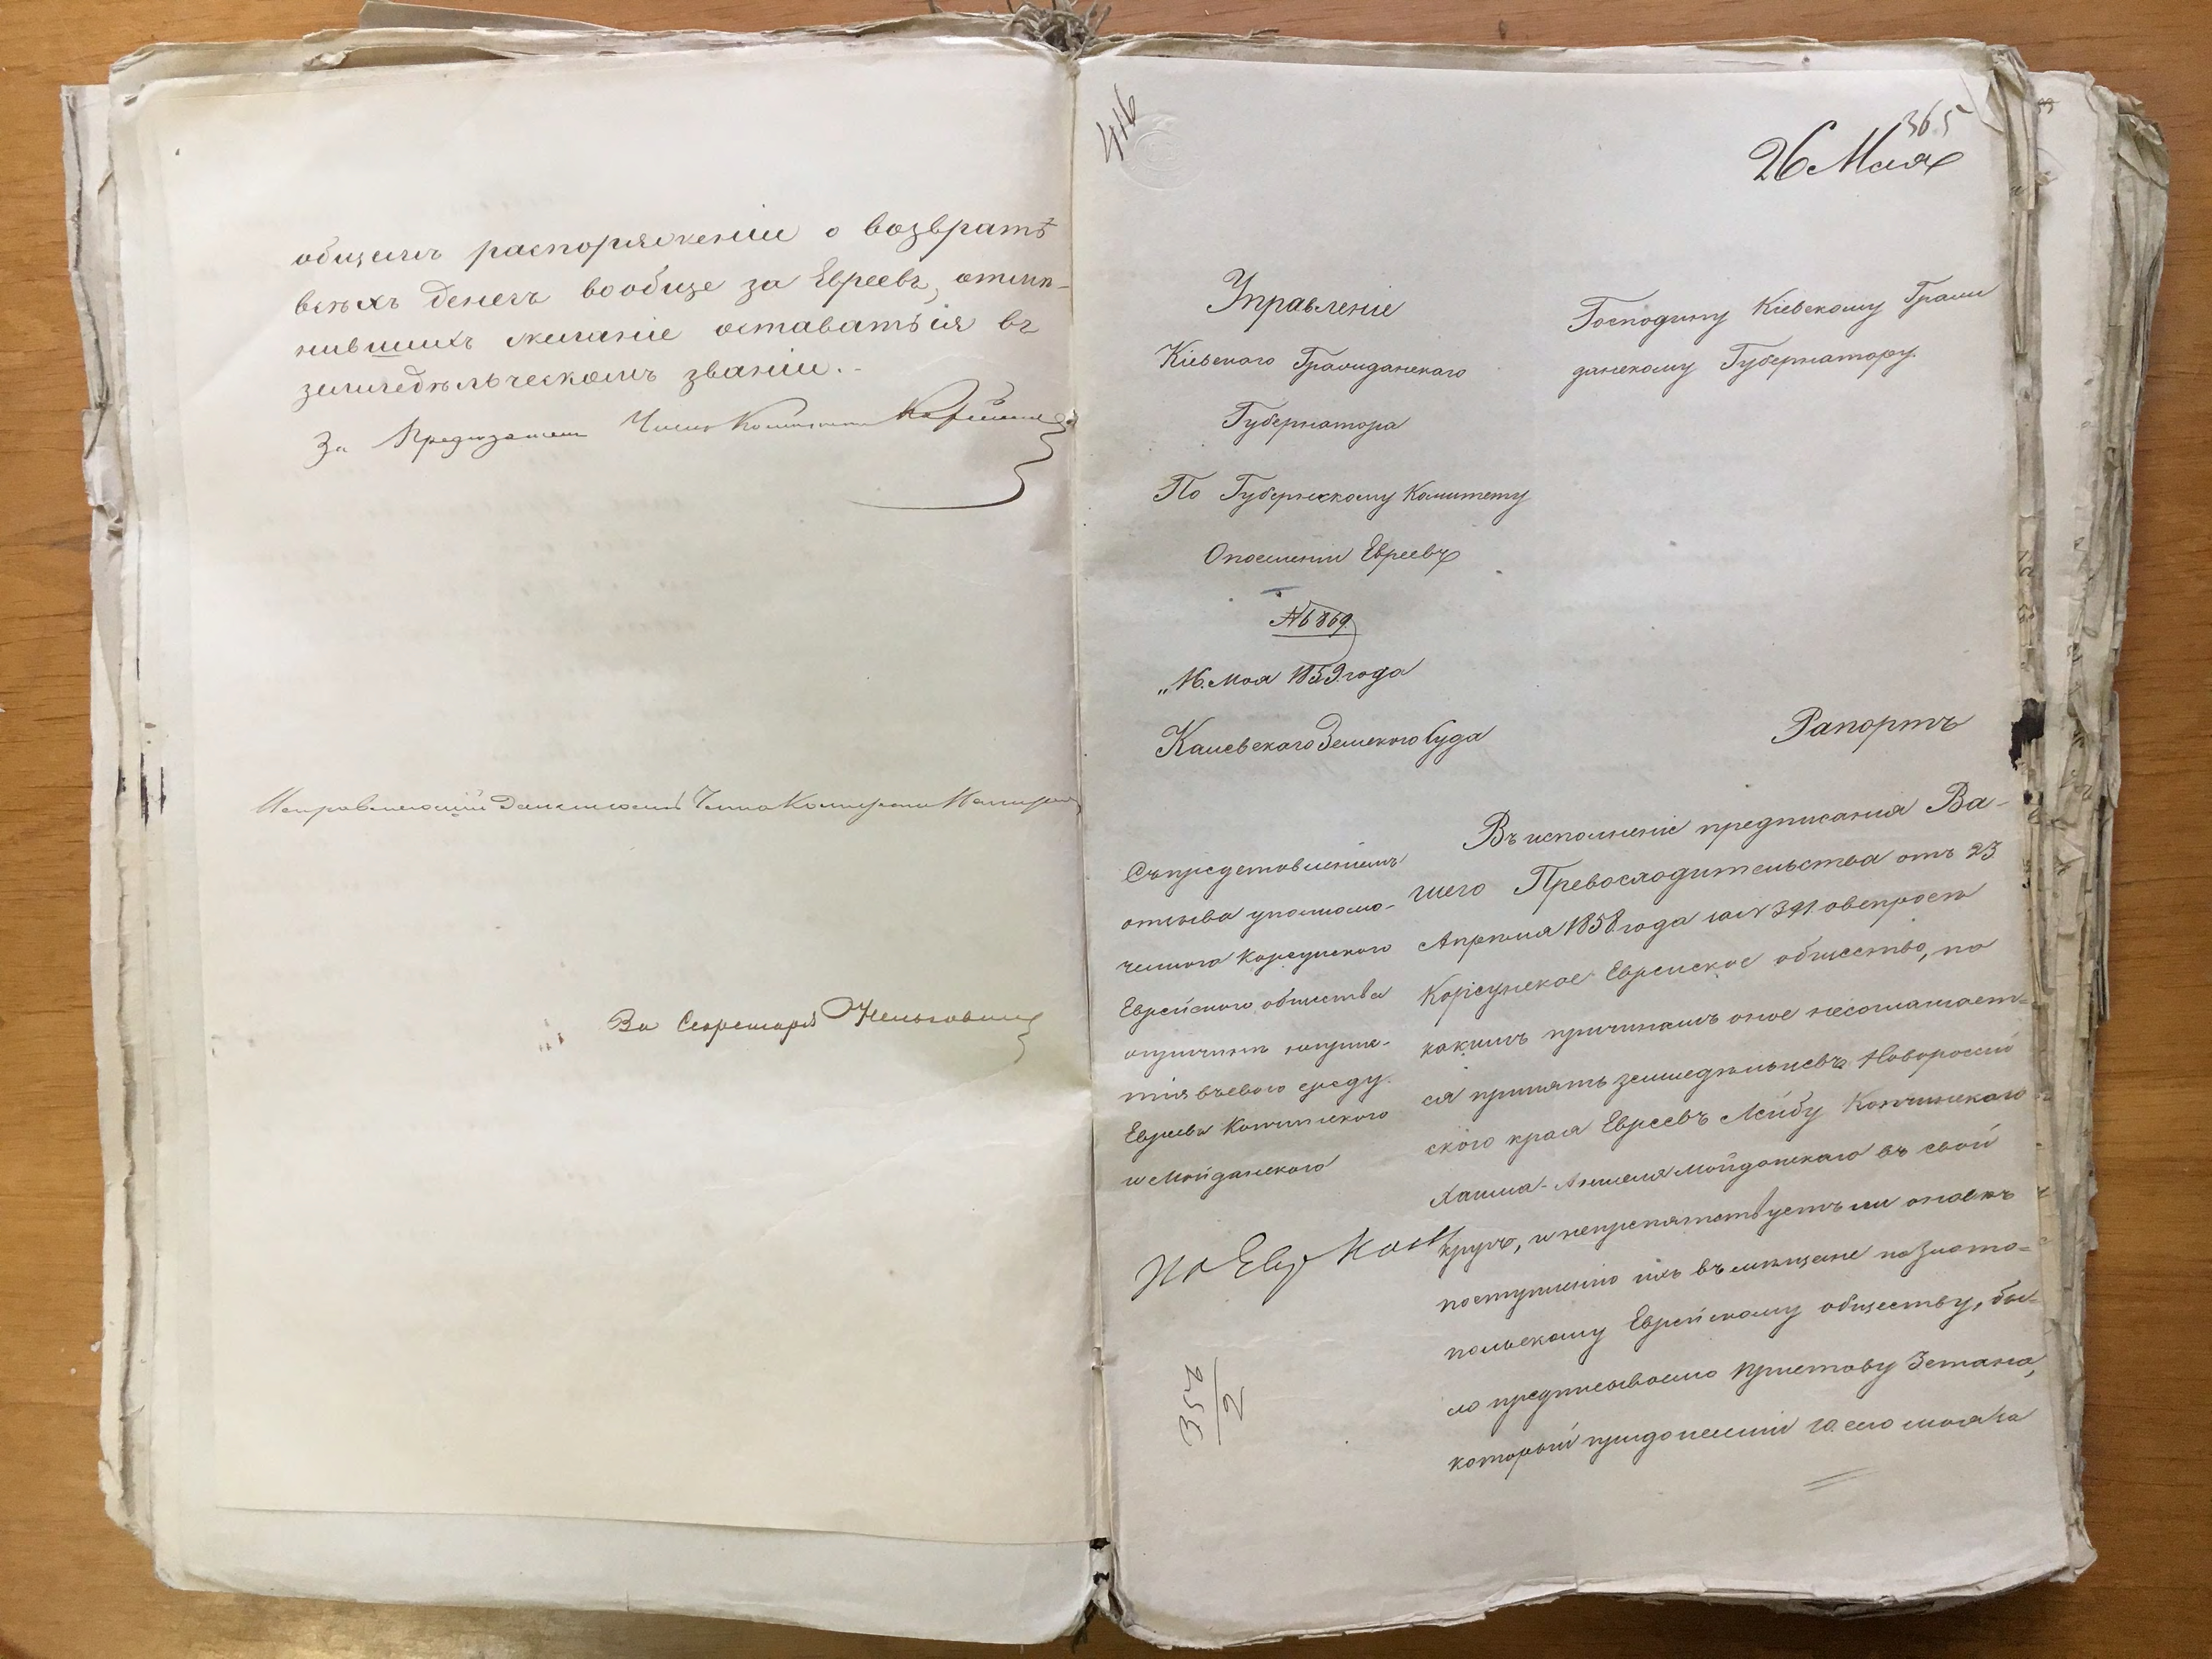 общемъ распоряженіи о возвратѣ
всѣхъ денегъ вообще за Евреевъ, отмѣ-
нившихъ желаніе оставаться въ
земледѣльческомъ званіи.
За Предсѣдателя Членъ Комитета
Исправляющій Должность Члена Комитета
За Секретаря
416
365
26 Мая
Управленіе
Кіевскаго Гражданскаго
Губернатора
По Губернскому Комитету
О поселеніи Евреевъ
№ 6869
„16. Мая 1859. года
Каневскаго Земскаго Суда
Господину Кіевскому Граж
данскому Губернатору.
Рапортъ
Съ представленіемъ
отзыва уполномо-
ченнаго Корсунскаго
Еврейскаго общества
о причинѣ непри-
тія въ свою среду
Евреевъ Копчинскаго
и Мойданскаго
356/2
Въ исполненіе предписанія Ва-
шего Превосходительства отъ 23
Апрѣля 1858 года за № 391 о вспросѣ
Корсунское Еврейское общество, по
какимъ причинамъ оное несоглашает-
ся принять земледѣльцевъ Новороссій
скаго края Евреевъ Лейбу Копчинскаго
Хаима-Аншеля Мойданскаго въ свой
кругъ, и непрепятствуетъ ли оно къ
поступленію ихъ въ мѣщане по Злато-
польскому Еврейскому обществу, бы-
ло предписываемо Приставу 3 стана,
который при донесеніи 10 сего мая за